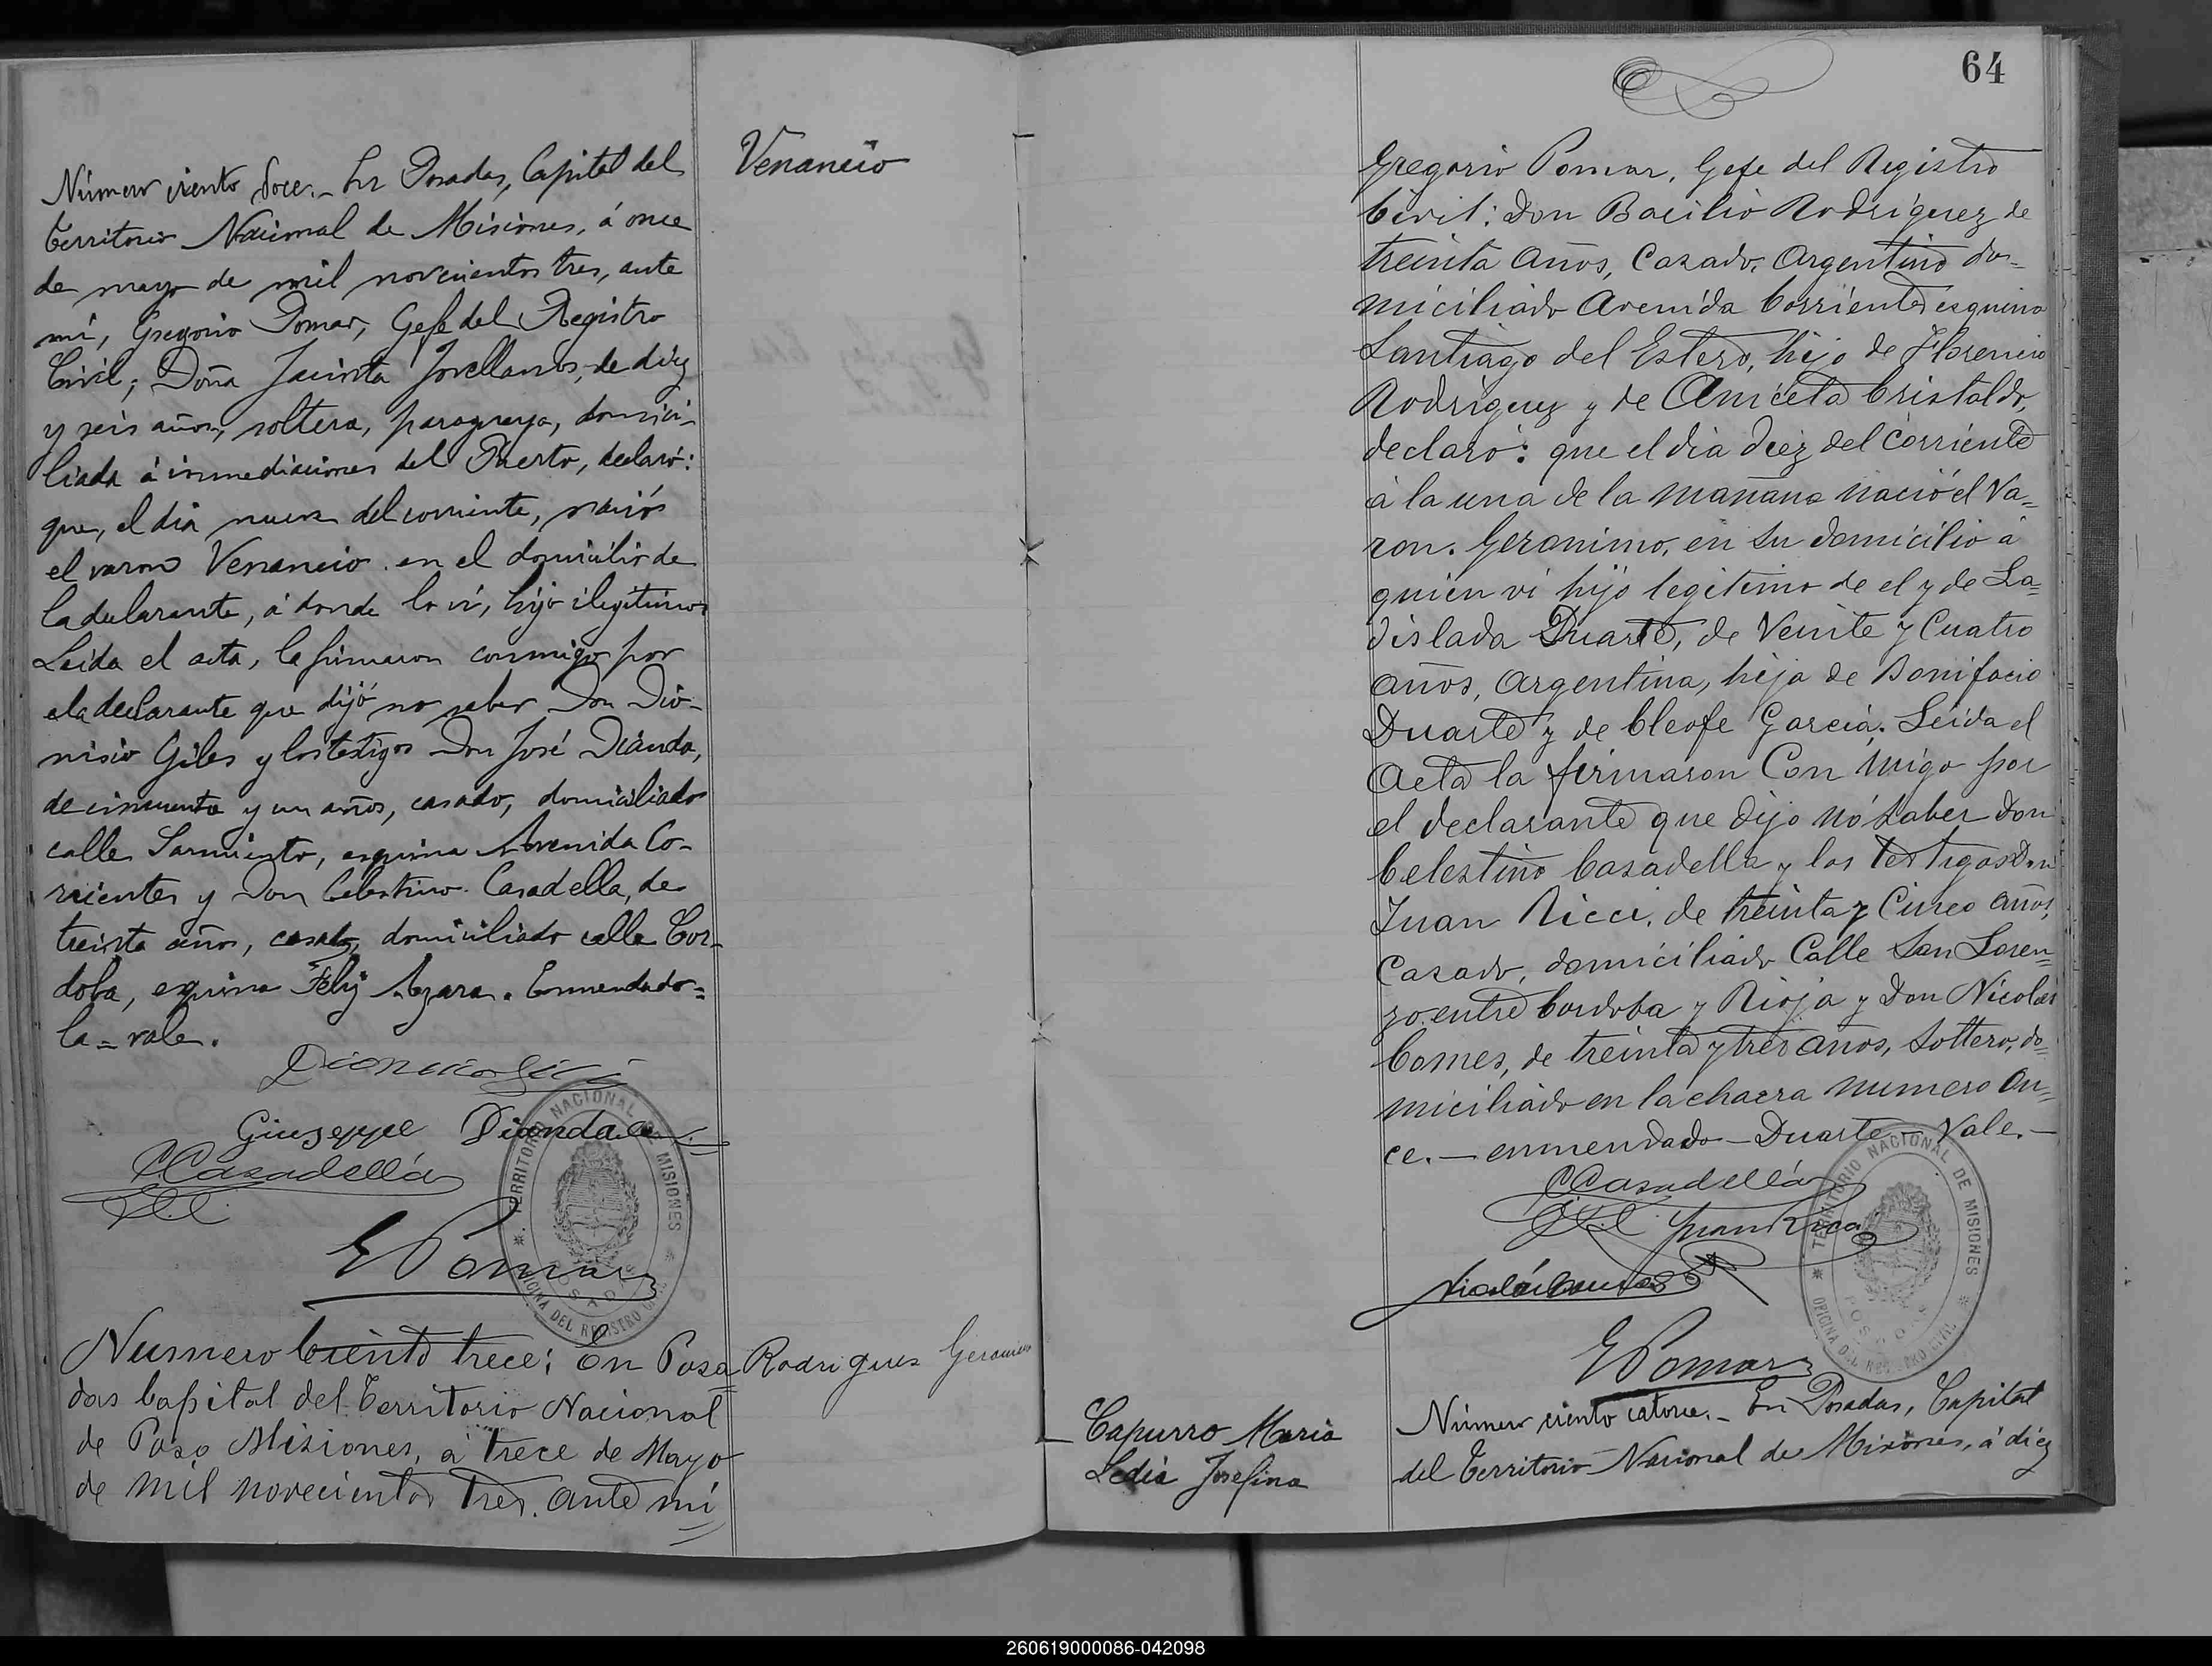 Número ciento doce._ En Posadas, Capital del
Territorio Nacional de Misiones, á once
de mayo de mil novecientos tres, ante
mi, Gregorio Pomar, Gefe del Registro
Civil; Doña Jacinta Jovellanos, de diez
y seis años, soltera, paraguaya, domici-
liada á inmediaciones del Puerto, declaró:
que, el dia nueve del corriente, nació
el varon Venancio en el domicilio de
la declarante, á donde lo vi, hijo ilegitimo.
Leida el acta, la firmaron conmigo por
la declarante que dijó no saber Don Dio-
nisio Giles y los testigos Don José Diánda,
de cincuenta y un años, casado, domiciliado
calle Sarmiento, esquina Avenida Co-
rrientes y Don Celestino Casadella, de
treinta años, casado, domiciliado calle Cor-
doba, esquina Feliz Azara. Enmendado=
la= vale.
Giuseppe Dianda
CCasadellá
GPomar
TERRITORIO NACIONAL DE MISIONES
POSADAS
OFICINA DEL REGISTRO CIVIL
Numero Ciento trece; En Posa
das Capital del Territorio Nacional
de Poso Misiones, a trece de Mayo
de mil novecientos tres. ante mi
Venancio
Rodrigues Geronimo
64
Gregorio Pomar, Gefe del Registro
Civil: Don Bacilio Rodriguez de
treinta años, Casado, Argentino do=
miciliado Avenida Corrientes esquina
Santiago del Estero, hijo de Florencio
Rodriguez y de Aniceta Cristaldo,
declaró: que el dia diez del corriente
á la una de la mañana nació el Va=
ron. Geronimo, en su domicilio á
quien vi hijo legitimo de el y de La=
dislada Duarte, de Veinte y Cuatro
años, Argentina, hija de Bonifacio
Duarte y de Cleofe Garcia. Leida el
Acta la firmaron Con migo por
el declarante que dijo nó saber Don
Celestino Casadella y los testigos Don
Juan Ricci, de treinta y Cinco años,
Casado, domiciliado Calle San Loren=
zo entre Cordoba y Rioja y Don Nicolás
Comes, de treinta y tres años, Soltero, do=
miciliado en la chacra numero On=
ce.— enmendado— Duarte— Vale.—
CCasadellá
GPomar
TERRITORIO NACIONAL DE MISIONES
POSADAS
OFICINA DEL REGISTRO CIVIL
Capurro Maria
Ledia Josefina
Número ciento catorce._ En Posadas, Capital
del Territorio Nacional de Misiones, á diez
260619000086-042098